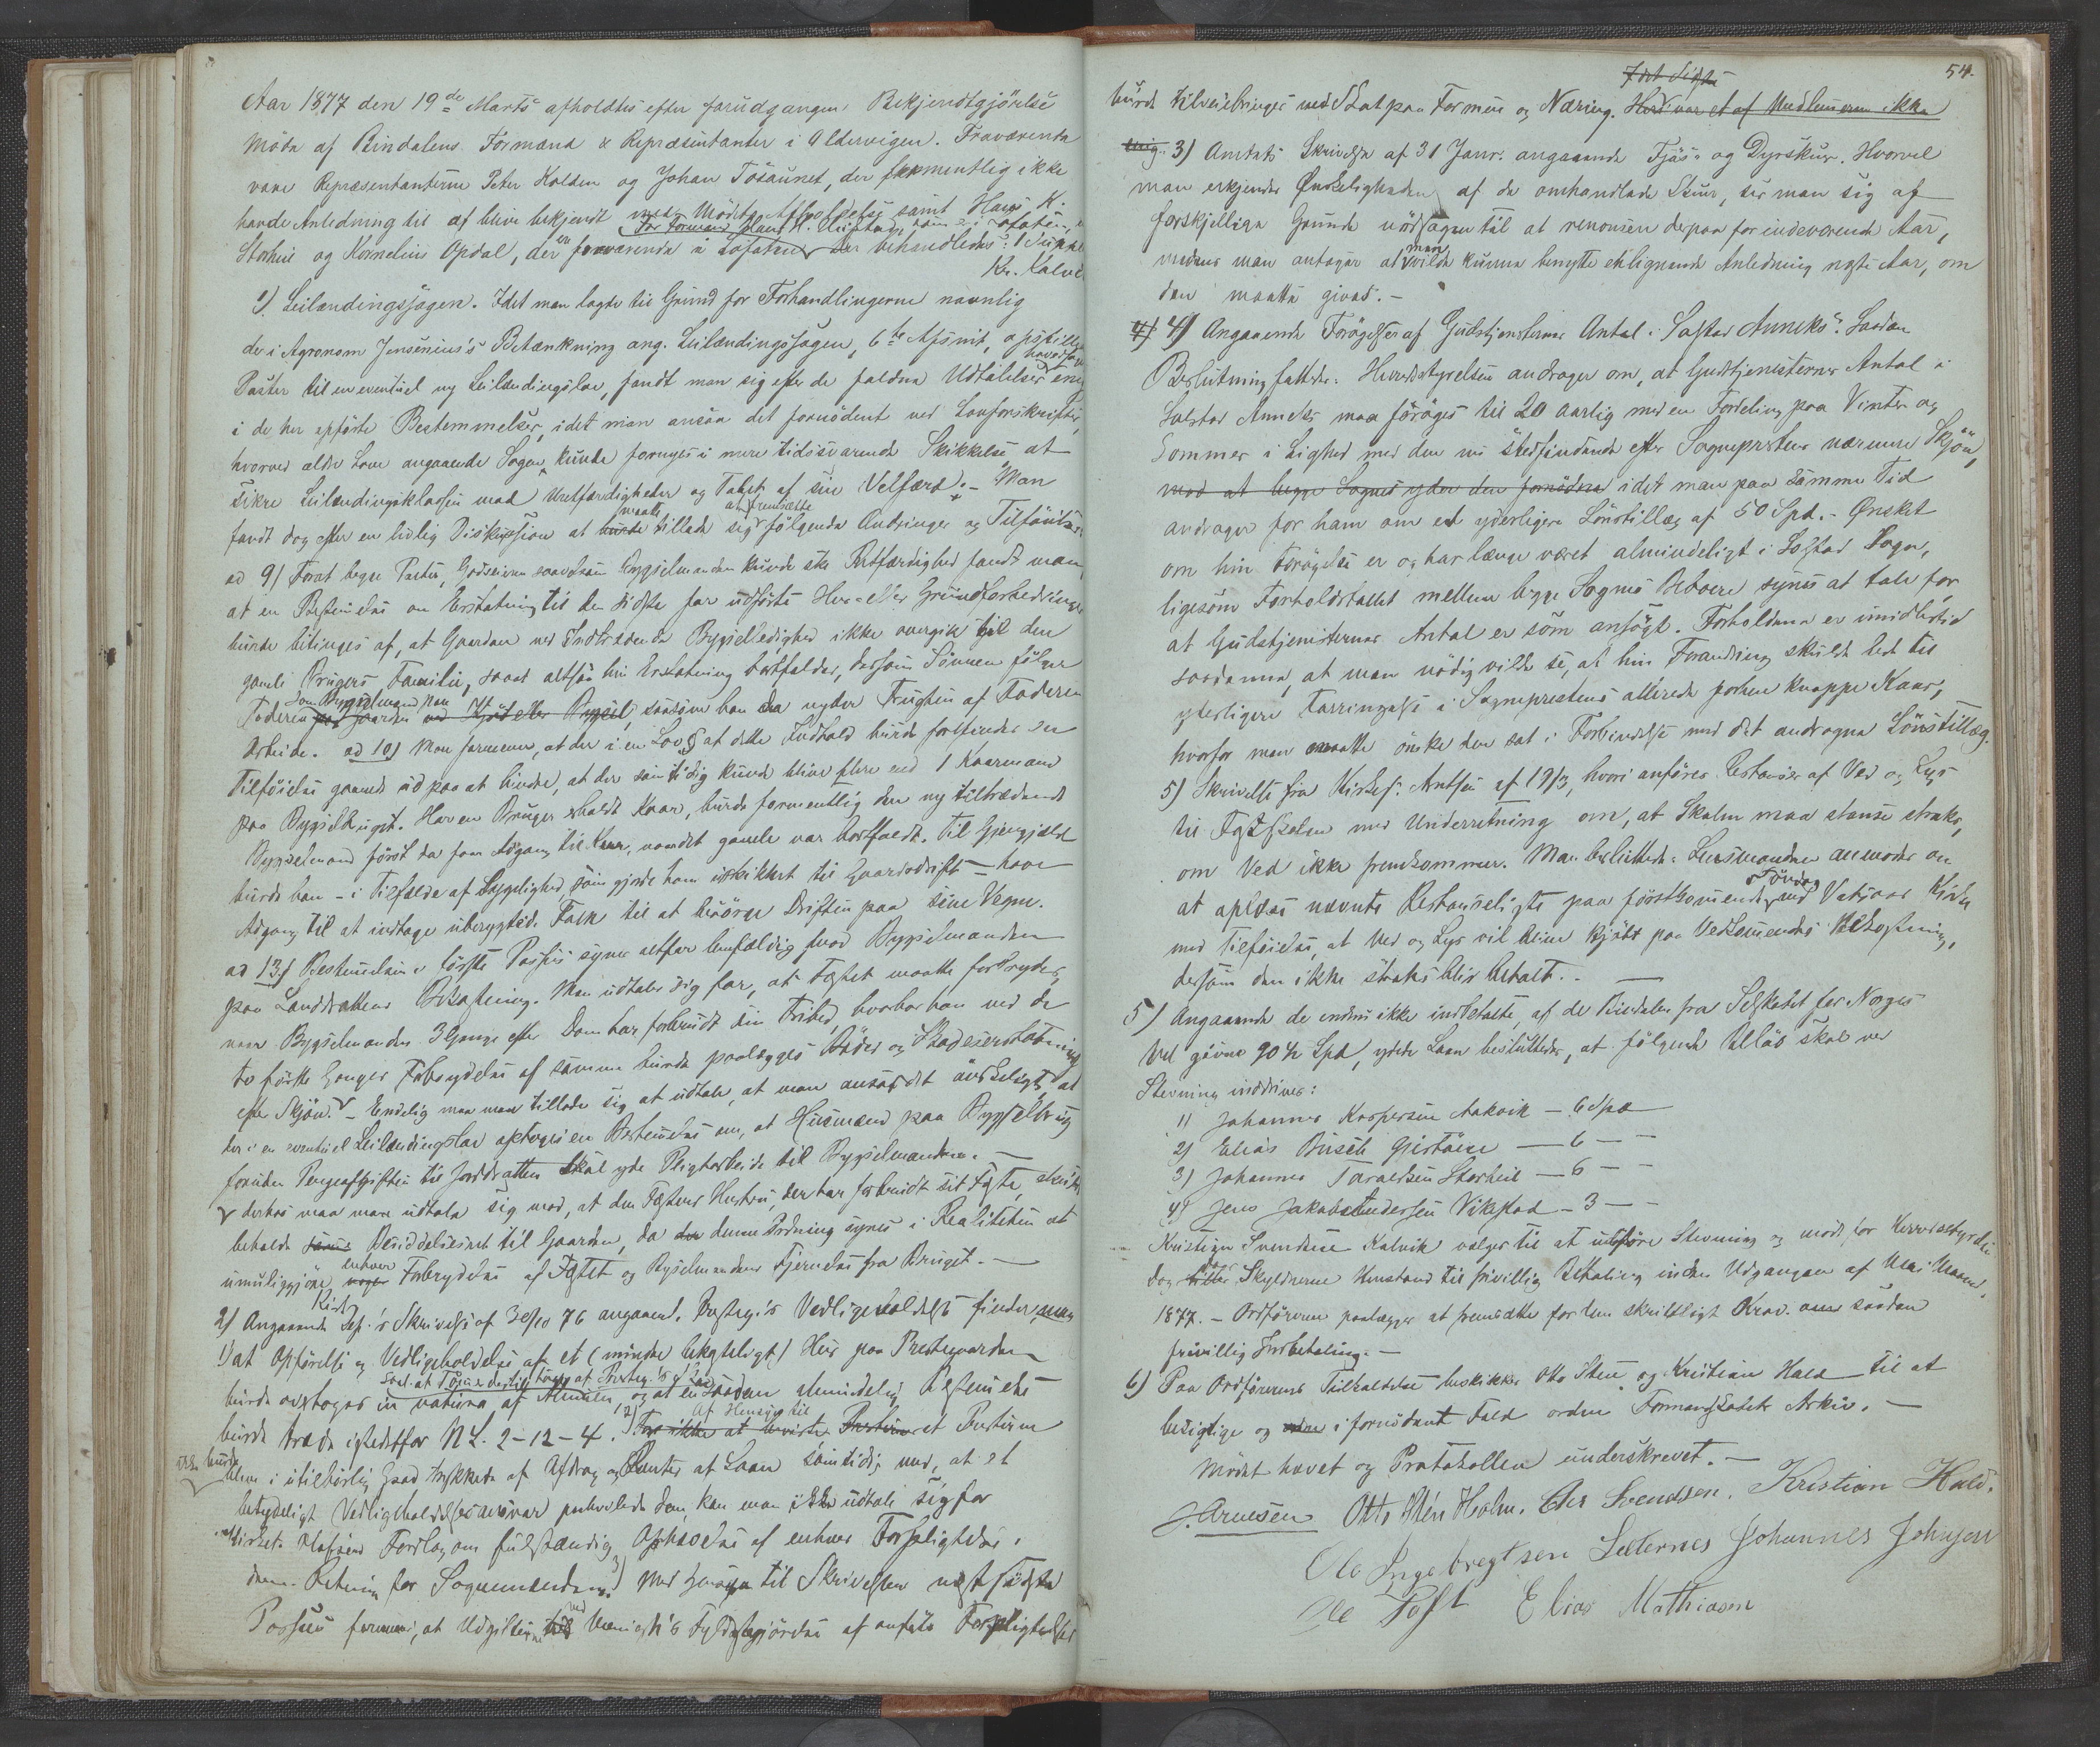 Aar 1877 den 19de Marts afholdtes efter forudgangen Bekjendtgjörelse
Möde af Bindalens Formænd & Repræsentanter i Aldervigen. Fraværende
vare Repræsentanterne Peter Kolden og Johan Tösaunet, der formentlig ikke
havde Anledning til at blive bekjendt med Mödets Afholdelse samt Hans K.
For Formand Hans H. som er i Lofoten,
Storhei og Kornelius Opdal, der ere fraværende i Lofoten. Der behandledes: 1 Suppl
Kr. Kalvik
1) Leilændingssagen. Idet man lagde til Grund for Forhandlingerne navnlig
de i Agronom Jensenius's Betænkning ang. Leilændingssagen, 6te Afsnit, opstillede
hovedsage
Poster til en eventuel ny Leilændingslov, fandt man sig efter de faldne Udtalelser enig
i de her opförte Bestemmelser, idet man ansaa det fornödent ved Lovforskrifter,
hvorved ældre Love angaaende Sagen kunde fornyes i mere tidssvarende Skikkelse at
sikre Leilændingsklassen mod Uretfærdigheder og Tabet af sin Velfærd. - Man
maatte at fremsætte
fandt dog efter en livlig Diskussion at burde tillade sig følgende Ændringer og Tilföielser:
ad 9) Forat begge Parter, Godseieren saavelsom Bygselmanden kunde ske Retfærdighed fandt man,
at en Bestemmelse om Erstatning til den sidste for udförte Huse- eller Grundforbedringer
burde betinges af, at Gaarden ved indtrædende Bygselledighed ikke overgik til den
gamle Brugers Familie, saa at altsaa hin Erstatning bortfalder, dersom Sönnen fölger
som Bygselmand paa
Faderen paa Gaarden ved Kjöb eller Bygsel, saasom han da nyder Frugten af Faderens
Arbeide. ad 10) Man formener, at der i en Lov af dette Indhold burde forefindes en
Tilföielse gaaende ud paa at hindre, at der samtidig kunde blive flere end 1 Kaarmand
paa Bygselbruget. Har en Bruger erholdt Kaar, burde formentlig den ny tiltrædende
Bygselmand först da faa Adgang til Kaar, naar det gamle var bortfaldt. Til Gjengjæld
burde han - i Tilfælde af Sygelighed, som gjorde ham uskikket til Gaardsdrift - have
Adgang til at indtage uberygtede Folk til at besörge Driften paa sine Vegne.
ad 13) Bestemmelsen i förste Passus synes altfor lemfældig mod Bygselmanden
paa Landdrottens Bekostning. Man udtaler sig for, at Fæstet maatte forbrydes,
naar Bygselmanden 3 Gange efter Dom har forbrudt sin Frihed, hvorhos han ved de
to förste Ganges Forbrydelse af samme burde paalægges Böder og Skadeserstatning
efter Skjön. - Endelig maa man tillade sig at udtale, at man ansaa det önskeligt, at
der i en eventuel Leilændingslov optoges en Bestemmelse om, at Husmænd paa Bygselbrug
foruden Pengeafgiften til Jorddrotten skal yde Pligtarbeide til Bygselmanden. -
derhos maa man udtale sig mod, at den Fæsters Hustru, der har forbrudt sit Fæste, skulde
beholde Besiddelsesret til Gaarden, da denne Ordning synes i Realiteten at
enhver
umuliggjöre nogen Forbrydelse af Fæstet og Bygselmandens Fjernelse fra Bruget. -
Kirke
2) Angaaende Dep.'s Skrivelse af 30/10 76 angaaend. Presteg.'s Vedligeholdelse finder man
1) at Opförelse og Vedligeholdelse af et (mindre bekosteligt) Hus paa Prestegaarden
burde overtages in natura af Almuen, og at en saadan almindelig Bestemmelse
Af Hensyn til
burde træde istedetfor N L. 2-12-4. 2) For ikke at Presterne
ikke burde
blive i utilbörlig Grad trykkede af Afdrag og Renter af Laan samtidig med, at et
betydeligt Vedligeholdelsesansvar paahvilede dem, kan man ikke udtale sig for
Forslag om fuldstændig Ophævelse af enhver Forpligtelse i
denne Retning for Sognemændene. 3) Med Hensyn til Skrivelsens næstsidste
Passus formenes, at Udgifterne ved Menigh's Fyldestgjörelse af anförte Forpligtelser

54.
Idet Sidste
burde tilveiebringes ved Skat paa Formue og Næring. Herdi var et af Medlemerne ikke
enig. 3) Amtets Skrivelse af 31 Janr. angaaende Fjös- og Dyrskuer. Hvorvel
man erkjender Ønskeligheden af de omhandlede Skuer, ser man sig af
forskjellige Grunde nödsagen til at renoncere derpaa for indeværende Aar,
man
medens man antager at vilde kunne benytte en lignende Anledning næste Aar, om
den maatte gives. -
4) 4) Angaaende Forögelse af Gudstjenesternes Antal i Solstad Anneks. Saadan
Beslutning fattedes: Herredsstyrelsen andrager om, at Gudstjenesternes Antal i
Solstad Anneks maa forøges til 20 aarlig med en Fordeling paa Vinter og
Sommer i Lighed med den nu stedfindende efter Sogneprestens nærmere Skjön,
mod at begge Sognes yder den fornödne idet man paa samme Tid
andrager for ham om et yderligere Lönstillæg af 50 Spd. - Ønsket
om hin Forögelse er og har længe været almindeligt i Solstad Sogn,
ligesom Forholdstallet mellem begge Sognes Beboere synes at tale for,
at Gudstjenesternes Antal er som ansögt. Forholdene er imidlertid
saadanne, at man nödig vilde se, at hin Forandring skulde lede til
yderligere Forringelse i Sogneprestens allerede forhen knappe Kaar,
hvorfor man maatte önske den sat i Forbindelse med det andragne Lönstillæg.
5) Skrivelse fra Kirkes. Arntsen af 19/3, hvori anföres Restancer af Ved og Lys
til Fastskolen med Underretning om, at Skolen maa stanse straks,
om Ved ikke fremkommer. Man besluttede: Lensmanden anmodes om
Søndag
at oplæse nævnte Restanseliste paa förstkommende ved Vatsaas Kirke
med Tilföielse, at Ved og Lys vil blive kjöbt paa Vedkommendes Bekostning,
dersom den ikke straks blir betalt. -
5) Angaaende de endnu ikke indbetalte, af de Bindalen fra Selskabet for Norges
Vel givne 90 1/2 Spd, ydede Laan besluttedes, at fölgende Belöb skal ved
Stevning inddrives:
1) Johannes Kaspersen Aakvik - 6 Spd
2) Elias Busch Gjerstöen - 6 - -
3) Johannes Taraldsen Storhei - 6 - -
4) Jens Jakob Andersen Vikestad - 3 - -
Kristian Svendsen Kalvik vælges til at udföre Stevning og möde for Herredsstyrelsen
dog Skyldnerne Henstand til frivillig Betaling inden Udgangen af Mai Maaned
1877. - Ordföreren paalægges at fremsætte for dem skriftligt Krav om saadan
frivillig Indbetaling. -
6) Paa Ordförerens Tilkaldelse beskikkes Otto Sten og Kristian Hald til at
besigtige og i fornödent Fald ordne Formandskabets Arkiv. -
Mödet hævet og Protokollen underskrevet. -
J. Arnesen Otto Stén Holm. Chr Svendsen. Kristian Hald.
Ole Ingebregtsen Sæternes Johannes Johnsen
Ole Toft Elias Mathiasen